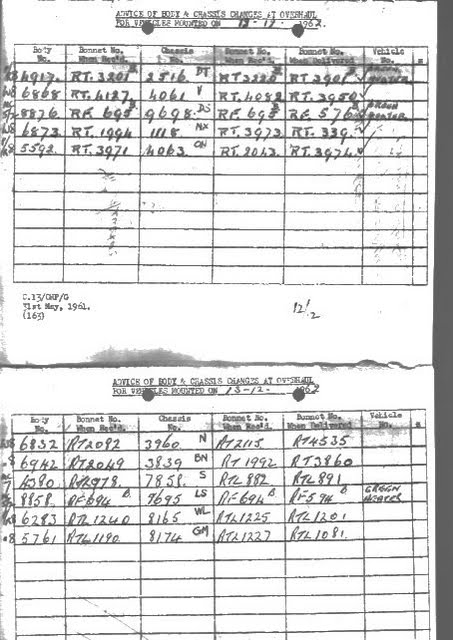 ADVICE OF BODY & CHASSIS CHANGES AT OVERHAUL
FOR VEHICLES MOUNTED ON 1962.
Body No. Bonnet No. When Rec'd. Chassis No. Bonnet No. When Rec'd. Bonnet No. When Delivered Vehicle No.
RT.3201 2516 RT RT.3901
6868 RT.4127 4061 V RT.4082 RT.3950
8876 RF.695 B 9698 DS RF.695 B RF.576 GREEN
6873 RT.1994 1118 NX RT.3973 RT.339
5592 RT.3971 4063 ON RT.2043 RT.3974
C.13/CHP/G
31st May, 1961.
(163)
12/2
ADVICE OF BODY & CHASSIS CHANGES AT OVERHAUL
FOR VEHICLES MOUNTED ON 13-12- 1962
Body No. Bonnet No. When Rec'd. Chassis No. Bonnet No. When Rec'd. Bonnet No. When Delivered Vehicle No.
6832 RT2082 3960 N RT2115 RT4535
6942 RT2049 3839 BN RT1992 RT3860
7858 S RTL882 RTL891
8858 RF694 B 9695 LS RF694 B RF594 B GREEN HEATER
6283 RTL1240 8165 WL RTL1225 RTL1201
5761 RTL1190 8174 GM RTL1227 RTL1081